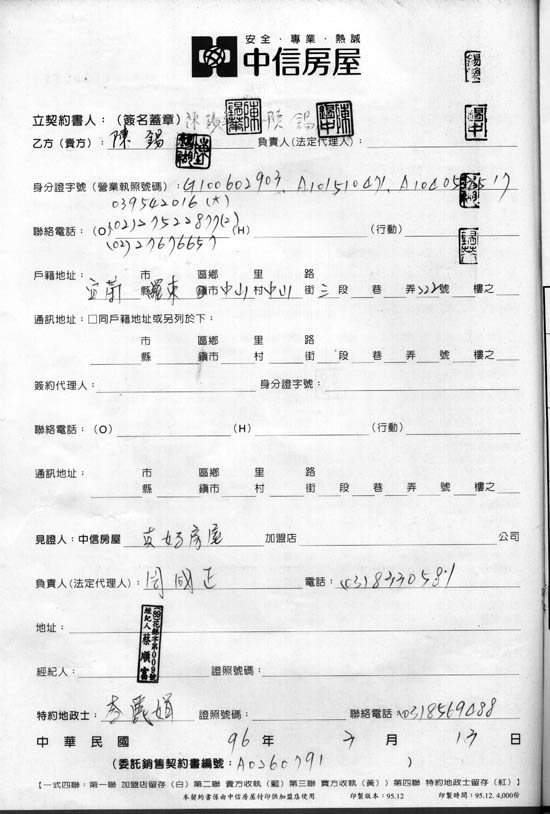 安全‧專業‧熱誠
中信房屋
立契約書人：（簽名蓋章）
乙方（賣方）：陳錫 負責人（法定代理人）：
身分證字號（營業執照號碼）：G100602903、A101510471、
039542016(大)
聯絡電話：（O）(02)27522877(2) （H） （行動）
(02)27676657
戶籍地址：宜蘭縣 羅東鎮 中山村 中山街 三段 巷 弄 222號 樓之
市 區鄉 里 路
通訊地址：□同戶籍地址或另列於下：
市 區鄉 里 路
縣 鎮市 村 街 段 巷 弄 號 樓之
簽約代理人： 身分證字號：
聯絡電話：（O） （H） （行動）
通訊地址： 市 區鄉 里 路
縣 鎮市 村 街 段 巷 弄 號 樓之
見證人：中信房屋 真好房屋 加盟店 公司
負責人(法定代理人)：周國正 電話：(03)8330581
地址：
(89)花縣字第009號
經紀人 蔡順富
經紀人： 證照號碼：
特約地政士：李麗娟 證照號碼 聯絡電話(03)8569488
中華民國 96 年 3 月 13 日
（委託銷售契約書編號：A0260791 ）
【一式四聯：第一聯 加盟店留存（白）第二聯 賣方收執（藍）第三聯 買方收執（黃））第四聯 特約地政士留存（紅）】
本契約書係由中信房屋付印供加盟店使用 印製版本：95.12 印製時間：95.12. 4,000份